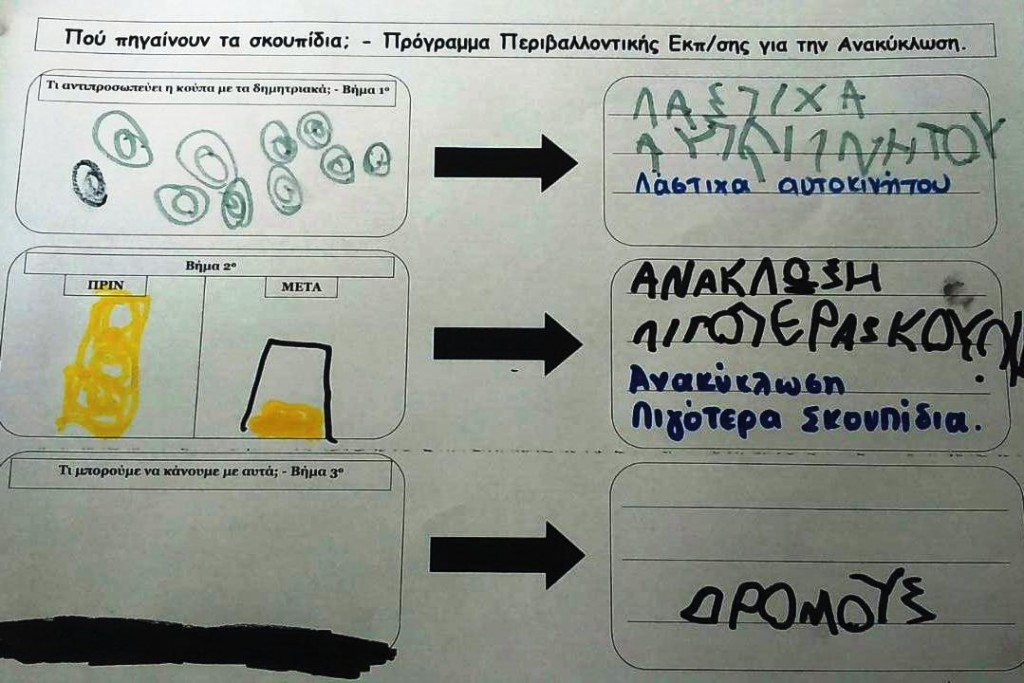 Πού πηγαίνουν τα σκουπίδια; - Πρόγραμμα Περιβαλλοντικής Εκπ/σης για την Ανακύκλωση.
Τι αντιπροσωπεύει η κούπα με τα δημητριακά; - Βήμα 1ο
ΛΑΣΤΙΧΑ
ΑΥΤΚΙΝΗΤΟΥ
Λάστιχα αυτοκινήτου
Βήμα 2ο
ΠΡΙΝ
ΜΕΤΑ
ΑΝΑΚΛΩΣΗ
Ανακύκλωση
Λιγότερα Σκουπίδια.
Τι μπορούμε να κάνουμε με αυτά; - Βήμα 3ο
ΔΡΟΜΟΥΣ